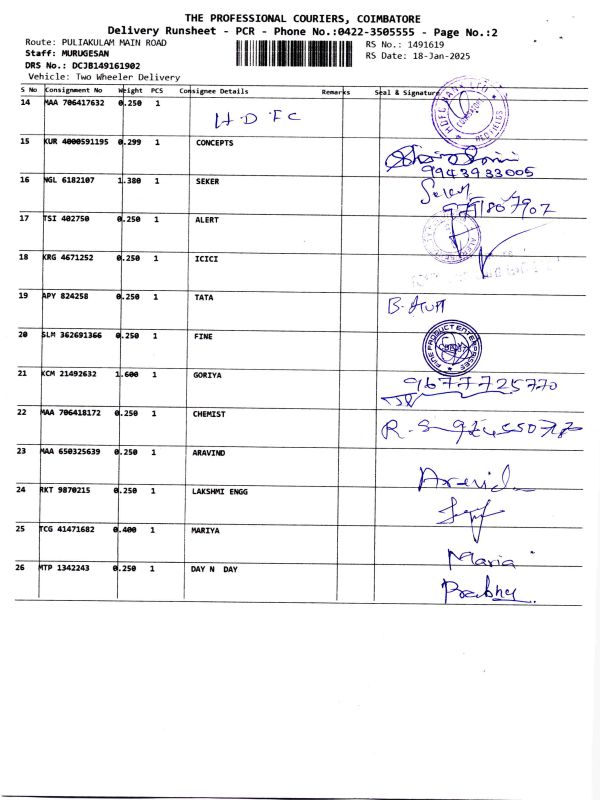 THE PROFESSIONAL COURIERS, COIMBATORE
Delivery Runsheet - PCR - Phone No.:0422-3505555 - Page No.:2
Route: PULIAKULAM MAIN ROAD RS No.: 1491619
Staff: MURUGESAN RS Date: 18-Jan-2025
DRS No.: DCJB149161902
Vehicle: Two Wheeler Delivery
S No Consignment No Weight PCS Consignee Details Remarks Seal & Signature
14 MAA 706417632 0.250 1 H D F C
HDFC BANK LTD
15 KUR 4000591195 0.299 1 CONCEPTS
9943933005
16 NGL 6182107 1.380 1 SEKER
17 TSI 402750 0.250 1 ALERT
18 KRG 4671252 0.250 1 ICICI
19 APY 824258 0.250 1 TATA
20 SLM 362691366 0.250 1 FINE
FINE PRODUCT ENTERPRISES
21 KCM 21492632 1.600 1 GORIYA
9677725770
22 MAA 706418172 0.250 1 CHEMIST
23 MAA 650325639 0.250 1 ARAVIND
Aravid
24 RKT 9870215 0.250 1 LAKSHMI ENGG
25 TCG 41471682 0.400 1 MARIYA
Maria
26 MTP 1342243 0.250 1 DAY N DAY
Prabhu